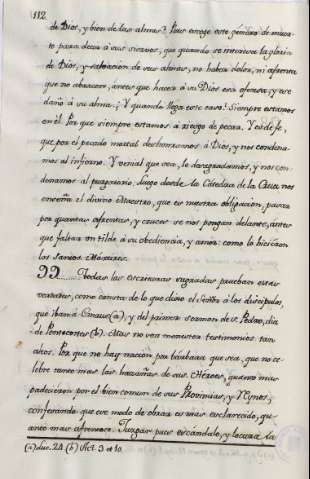 112
de Dios, y bien de las almas? Pues escoge este genero de muer-
te para decir á sus siervos, que quando se atraviesa la gloria
de Dios, y salvacion de sus almas, no haya dolor, ni afrenta
que no abracen, antes que hacer á su Dios una ofensa, y ese
daño á su alma. ¿Y quando llega este caso? Siempre estamos
en él. Por que siempre estamos á riesgo de pecar. Y es de fe,
que por el pecado mortal deshonramos á Dios, y nos condena-
mos al infierno. Y venial que sea, lo desagradamos, y nos con-
denamos al purgatorio. Luego desde la Catedra de la Cruz nos
enseña el divino Maestro, que es nuestra obligacion, pasar
por quantas afrentas, y cruces se nos pongan delante, ántes
que faltar un tilde á su obediencia, y amor: como lo hicieron
los santos Mártires.
Todas las escrituras sagradas prueban estas
verdades, como consta de lo que dixo el Señor á los discipulos,
que iban á Emaus (a), y del primer sermon de S. Pedro, dia
de Pentecostes (b). Mas no son menester testimonios tan
altos. Por que no hay nacion por barbara que sea, que no ce-
lebre tanto mas las hazañas de sus Héroes, quanto mas
padecieron por el bien comun de sus Provincias, y Reynos;
confesando que ese modo de obrar es mas esclarecido, qu-
anto mas afrentoso. Juzgar pues escándalo, y locura la
(a) Luc. 24. (b) Act. 3. et 10.